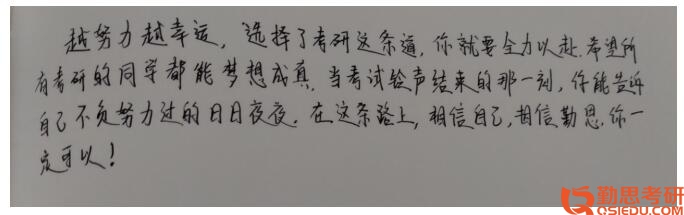 越努力越幸运，选择了考研这条道，你就要全力以赴.希望所
有考研的同学都能梦想成真.当考试铃声结束的那一刻,你能告诉
自己不负努力过的日日夜夜.在这条路上,相信自己,相信勤思.你一
定可以！
勤思考研
QSIEDU.COM